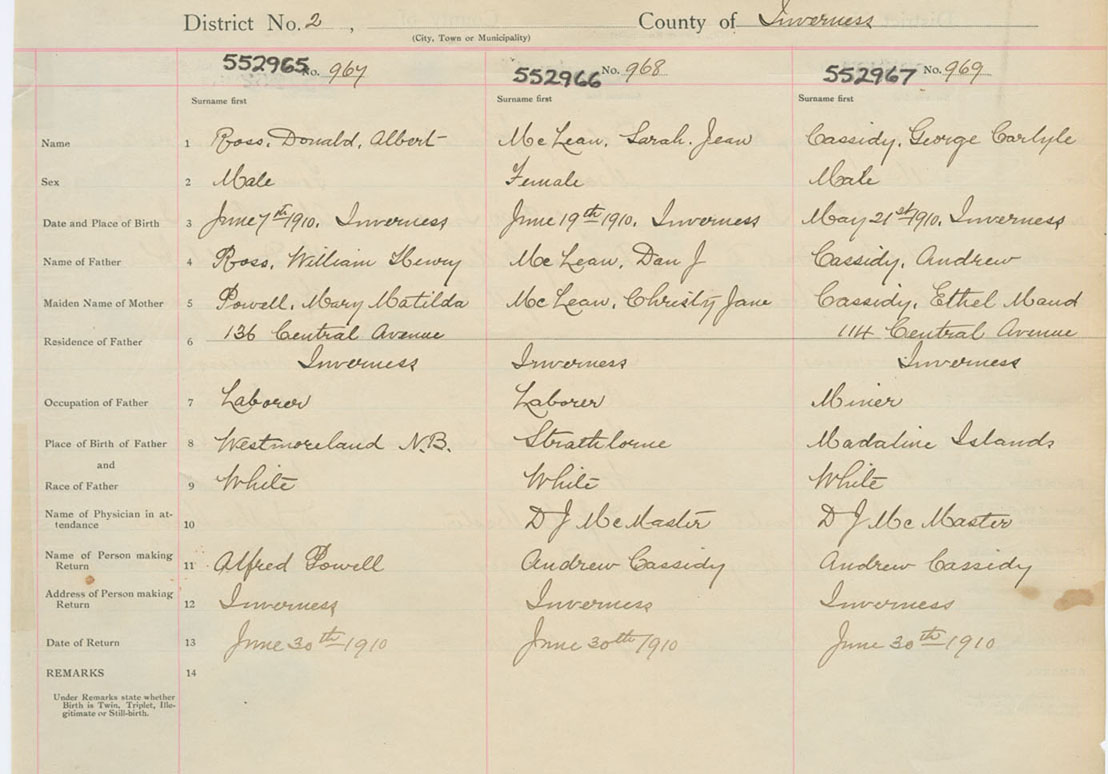 District No. 2 , County of Inverness
(City, Town or Municipality)
552965 No. 967 552966 No. 968 552967 No. 969
Surname first Surname first Surname first
Name 1 Ross, Donald, Albert McLean, Sarah. Jean Cassidy, George Carlyle
Sex 2 Male Female Male
Date and Place of Birth 3 June 7th 1910. Inverness June 19th 1910. Inverness May 21st 1910. Inverness
Name of Father 4 Ross, William Henry McLean, Dan J Cassidy, Andrew
Maiden Name of Mother 5 Powell, Mary Matilda McLean, Christy Jane Cassidy, Ethel Maud
136 Central Avenue 114 Central Avenue
Residence of Father 6
Inverness Inverness Inverness
Occupation of Father 7 Laborer Laborer Miner
Place of Birth of Father 8 Westmoreland N.B. Strathlorne Madaline Islands
and
Race of Father 9 White White White
Name of Physician in at-
tendance 10 D J McMaster D J McMaster
Name of Person making
Return 11 Alfred Powell Andrew Cassidy Andrew Cassidy
Address of Person making
Return 12 Inverness Inverness Inverness
Date of Return 13 June 30th 1910 June 30th 1910 June 30th 1910
REMARKS 14
Under Remarks state whether
Birth is Twin, Triplet, Ille-
gitimate or Still-birth.